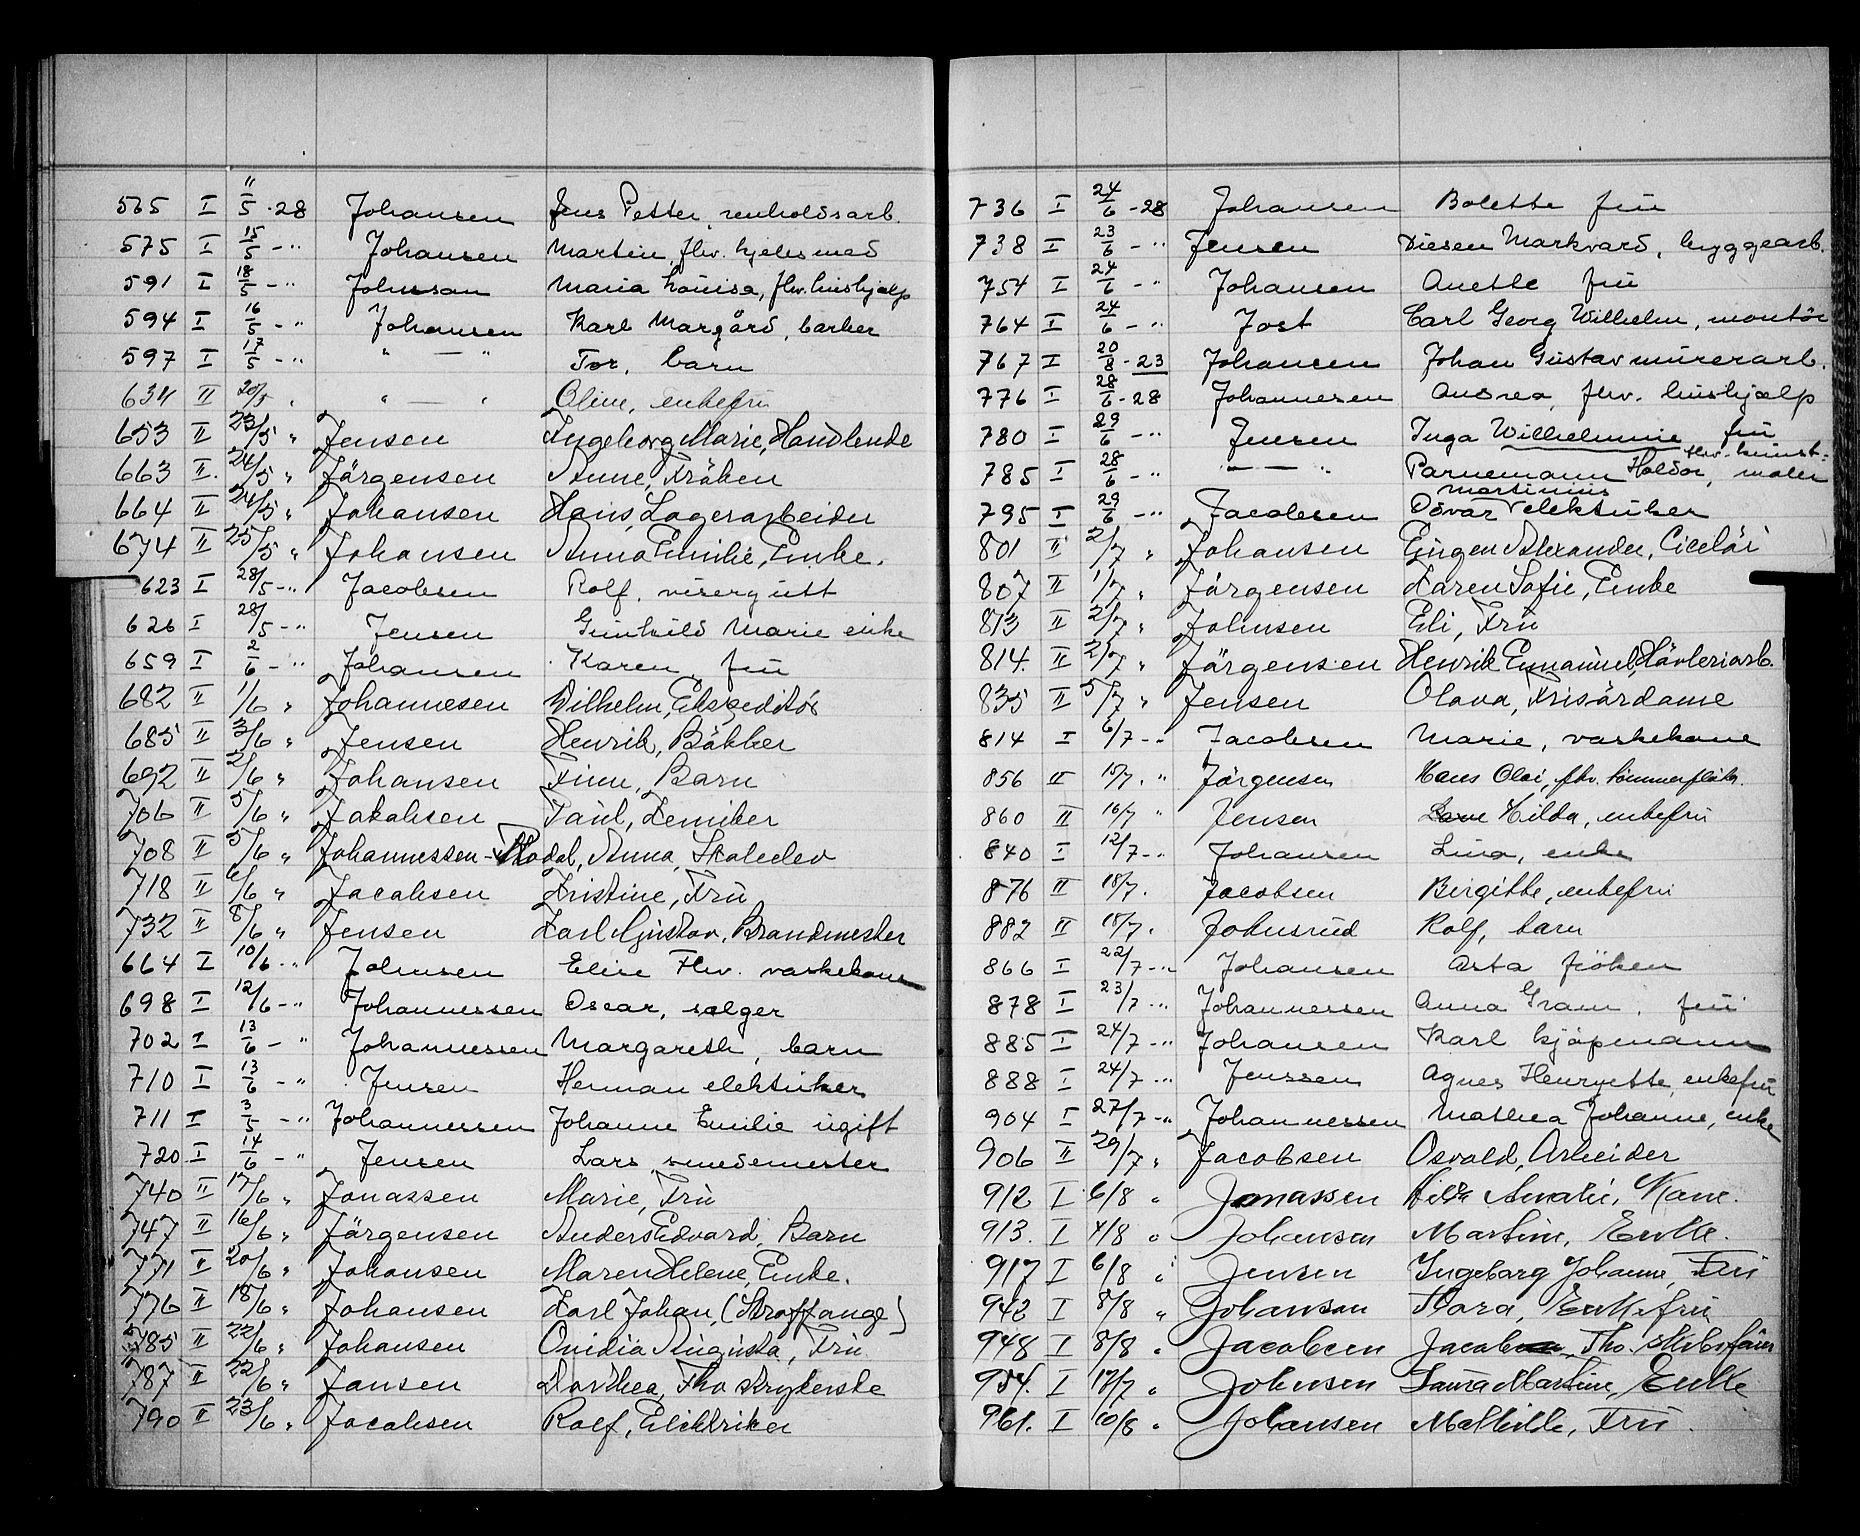 565 I 11/5 -28 Johansen Jens Petter, renholdsarb.
575 I 15/5 -" Johansen Martin, fhv. hjelesmed
591 I 18/5 -" Johnson Maria Louisa, fhv. hushjælp
594 I 16/5 -" Johansen Karl Margård, barber
597 I 17/5 -" " — " Tor, barn
634 II 20/5 " " — " Oline, enkefru
653 II 23/5 " Jensen Ingeborg Marie, Handlende
663 II. 24/5 " Jørgensen Anne, Frøken
664 II 24/5 " Johansen Hans, Lagerarbeider
674 II 25/5 " Johansen Anna Emilie, Enke.
623 I 28/5 -" Jacobsen Rolf, visergutt
626 I 28/5 -" Jensen Gunhild Marie enke
659 I 2/6 -" Johansen Karen, fru
682 II 1/6 " Johannesen Wilhelm, Ekspeditør
685 II 3/6 " Jensen Henrik, Bøkker
692 II 2/6 " Johansen Finn, Barn
706 II 5/6 " Jakobsen Paul, Kemiker
708 II 5/6 " Johannessen - Modal, Anna, Skoleelev
718 II 6/6 " Jacobsen Kristine, Fru
732 II 8/6 " Jensen Karl Gustav, Brandmester
664 I 10/6 -" Johnsen Elise Fhv. vaskekone
698 I 12/6 -" Johannessen Oscar, selger
702 I 13/6 -" Johannessen Margareth, barn
710 I 13/6 -" Jensen Herman elektriker
711 I 3/5 -" Johannessen Johanne Emilie ugift
720 I 14/6 -" Jensen Lars smedemester
740 II 17/6 " Jonassen Marie, Fru
747 II 16/6 " Jørgensen Anders Edvard, Barn
771 II 20/6 " Johansen Maren Helene, Enke.
776 II 18/6 " Johansen Karl Johan, (Straffange)
785 II 22/6 " Johansen Ovidia Augusta, Fru
787 II 22/6 " Jansen Dorthea, Fhv Strykerske
790 II 23/6 " Jacobsen Rolf, Elektriker
736 I 24/6 -28 Johansen Bolette fru
738 I 23/6 -" Jensen Diesen Markvard, byggearb.
754 I 24/6 -" Johansen Anette fru
764 I 24/6 -" Jost Carl Georg Wilhelm, montör
767 I 20/8 -23 Johansen Johan Gustav murerarb.
776 I 28/6 -28 Johannesen Andrea, fhv. hushjælp
780 I 29/6 -" Jensen Inga Wilhelmine fru
785 I 28/6 -" " — " Parnemann Holdor, fhv. kunst-maler
795 I 29/6 -" Jacobsen Martinius Osvar elektriker
801 II 2/7 " Johansen Eugen Alexander, Ciselør
807 II 1/7 " Jørgensen Karen Sofie, Enke
813 II 2/7 " Johnsen Eli, Fru
814. II 2/7 " Jørgensen Henrik Emanuel, Høvleriarb.
835 II 5/7 " Jensen Olava, Frisørdame
814 I 6/7 -" Jacobsen Marie, vaskekone
856 II 15/7. " Jørgensen Hans Olai, fhv. tømmerfløter.
860 II 16/7 " Jensen Hilda, enkefru
840 I 12/7 -" Johansen Lina, enke
876 II 18/7. Jacobsen Birgitte, enkefru
882 II 18/7. Johnsrud Rolf, barn
866 I 22/7 -" Johansen Asta frøken
878 I 23/7 -" Johannessen Anna Gram, fru
885 I 24/7 -" Johansen Karl kjøpmann
888 I 24/7 -" Jenssen Agnes Henryette, enkefru
904 I 27/7 -" Johannessen Mathea Johanne, enke
906 II 29/7 " Jacobsen Osvald, Arbeider
912 I 6/8 " Jonassen Hilda Amalie, Kone.
913. I 4/8 " Johansen Martine, Enke.
917 I 6/8 " Jensen Ingeborg Johanne, Fru
942 I 8/8 " Johanson Thora, Enkefru
948 I 8/8 " Jacobsen Jacob, Fhv. skibsfører
954. I 12/7 " Johnsen Laura Martine, Enke
961. I 10/8 " Johansen Mathilde, Fru.